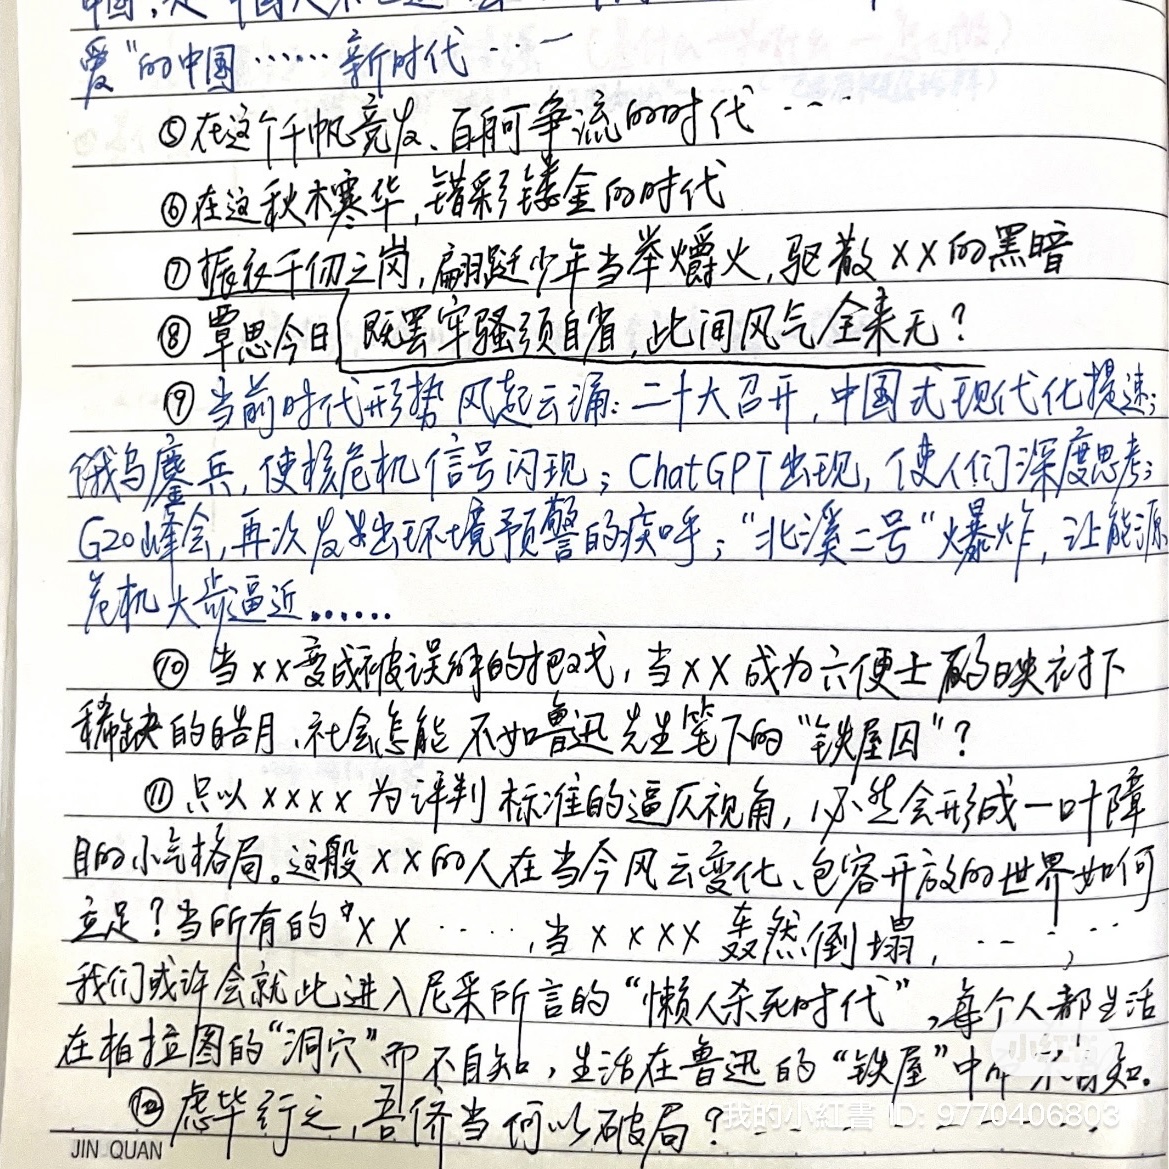 爱"的中国……新时代……
⑤在这个千帆竞发、百舸争流的时代……
⑥在这秋木寒华,错彩镂金的时代
⑦振衣千仞之岗,翩跹少年当举爝火,驱散××的黑暗
⑧覃思今日,既罢牢骚须自省,此间风气全来无?
⑨当前时代形势风起云涌:二十大召开,中国式现代化提速;
俄乌鏖兵,使核危机信号闪现;ChatGPT出现,使人们深度思考;
G20峰会,再次发出环境预警的疾呼;"北溪二号"爆炸,让能源
危机大步逼近……
⑩当××变成被误解的把戏,当××成为六便士映衬下
稀缺的皓月,社会怎能不如鲁迅先生笔下的"铁屋囚"?
⑪只以××××为评判标准的逼仄视角,必然会形成一叶障
目的小气格局。这般××的人在当今风云变化、包容开放的世界如何
立足?当所有的"××……,当××××轰然倒塌,……;……
我们或许会就此进入尼采所言的"懒人杀死时代",每个人都生活
在柏拉图的"洞穴"而不自知,生活在鲁迅的"铁屋"中而不自知。
⑫虑毕行之,吾侪当何以破局?……
小红书
我的小紅書 ID: 9770406803
JIN QUAN